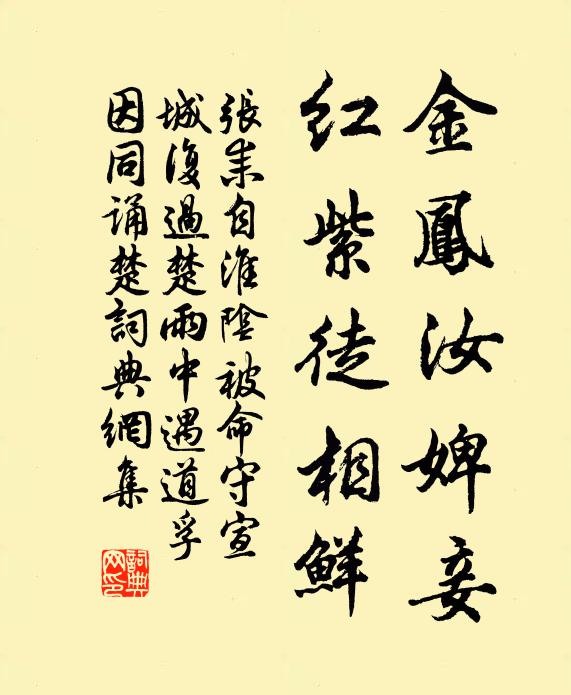 金鳳汝婢妾
紅紫徒相鮮
張耒自淮陰被命守宣
城復過楚雨中遇道孚
因同誦楚詞典網集
詞典網印